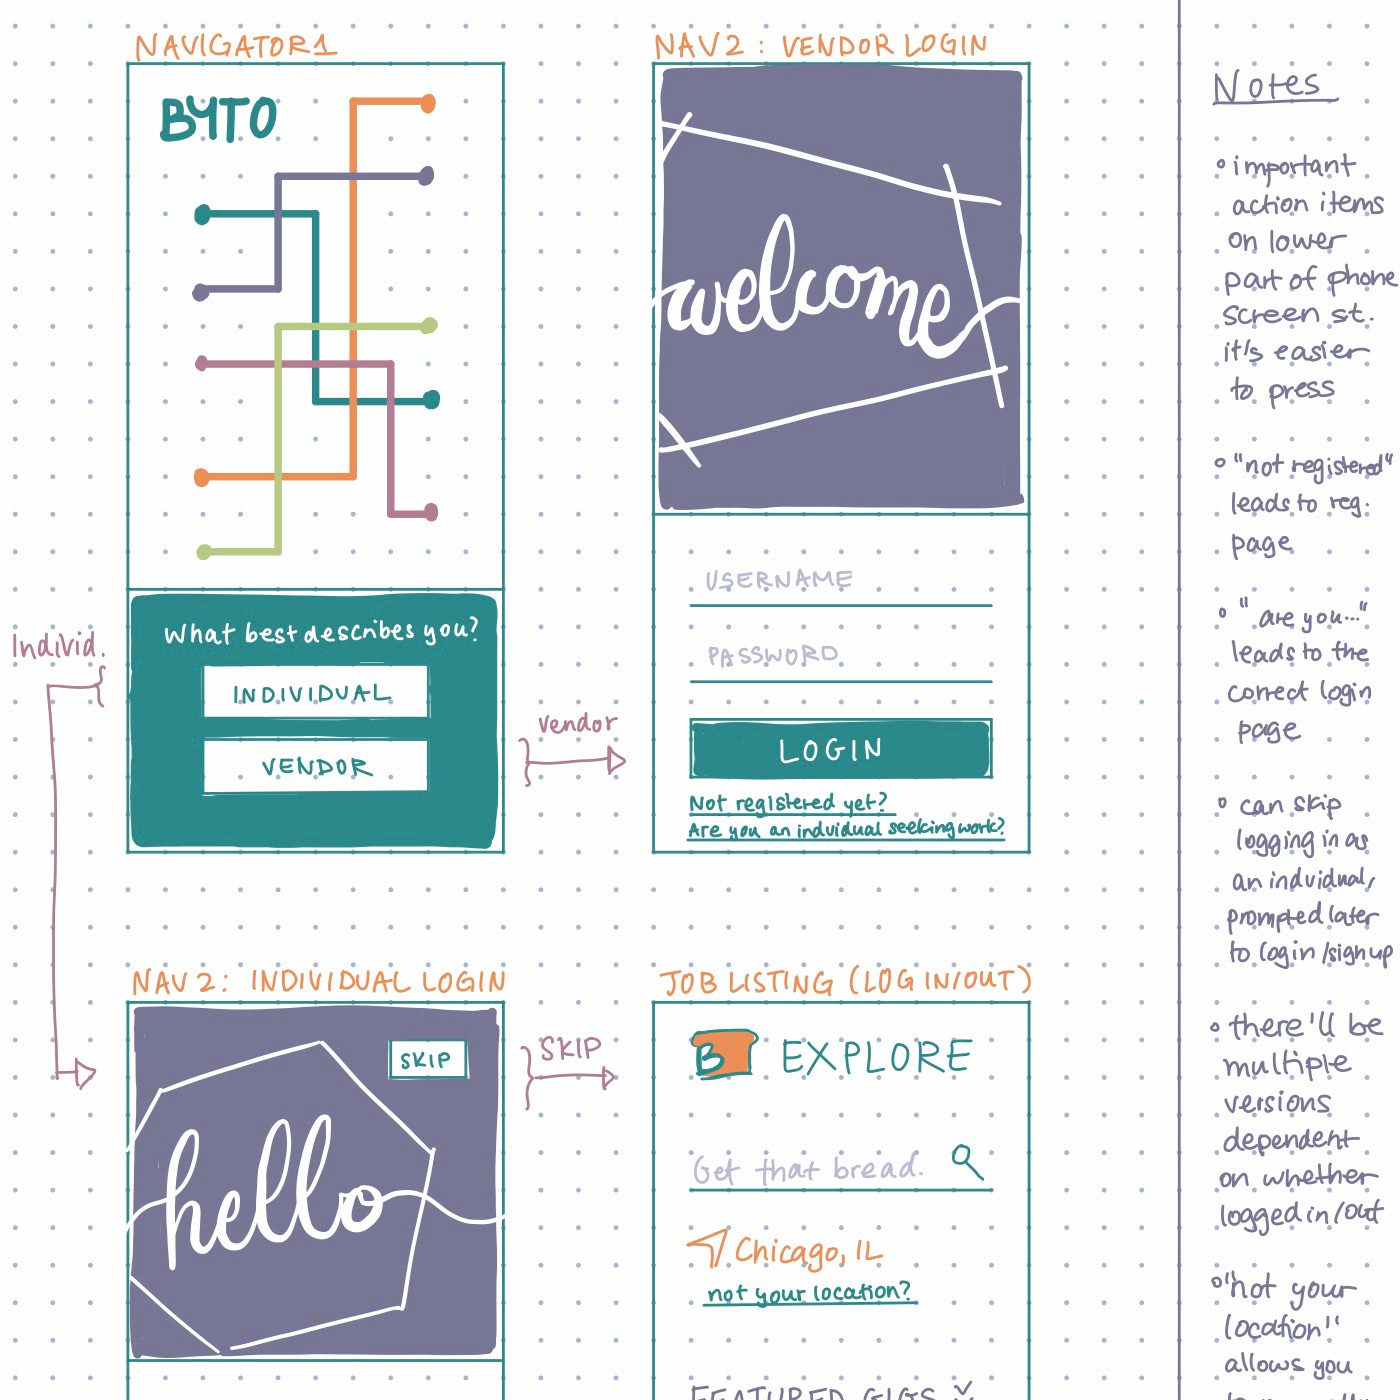 NAVIGATOR1
BYTO
What best describes you?
INDIVIDUAL
VENDOR
Individ.
vendor
NAV 2 : VENDOR LOGIN
welcome
USERNAME
PASSWORD
LOGIN
Not registered yet?
Are you an individual seeking work?
NAV 2: INDIVIDUAL LOGIN
SKIP
hello
SKIP
JOB LISTING (LOG IN/OUT)
B EXPLORE
Get that bread.
Chicago, IL
not your location?
FEATURED GIGS
Notes
important
action items
on lower
part of phone
screen st.
it's easier
to press
"not registered"
leads to reg.
page
"are you..."
leads to the
correct login
page
can skip
logging in as
an indvidual,
prompted later
to login/signup
there'll be
multiple
versions
dependent
on whether
logged in/out
"not your
location"
allows you